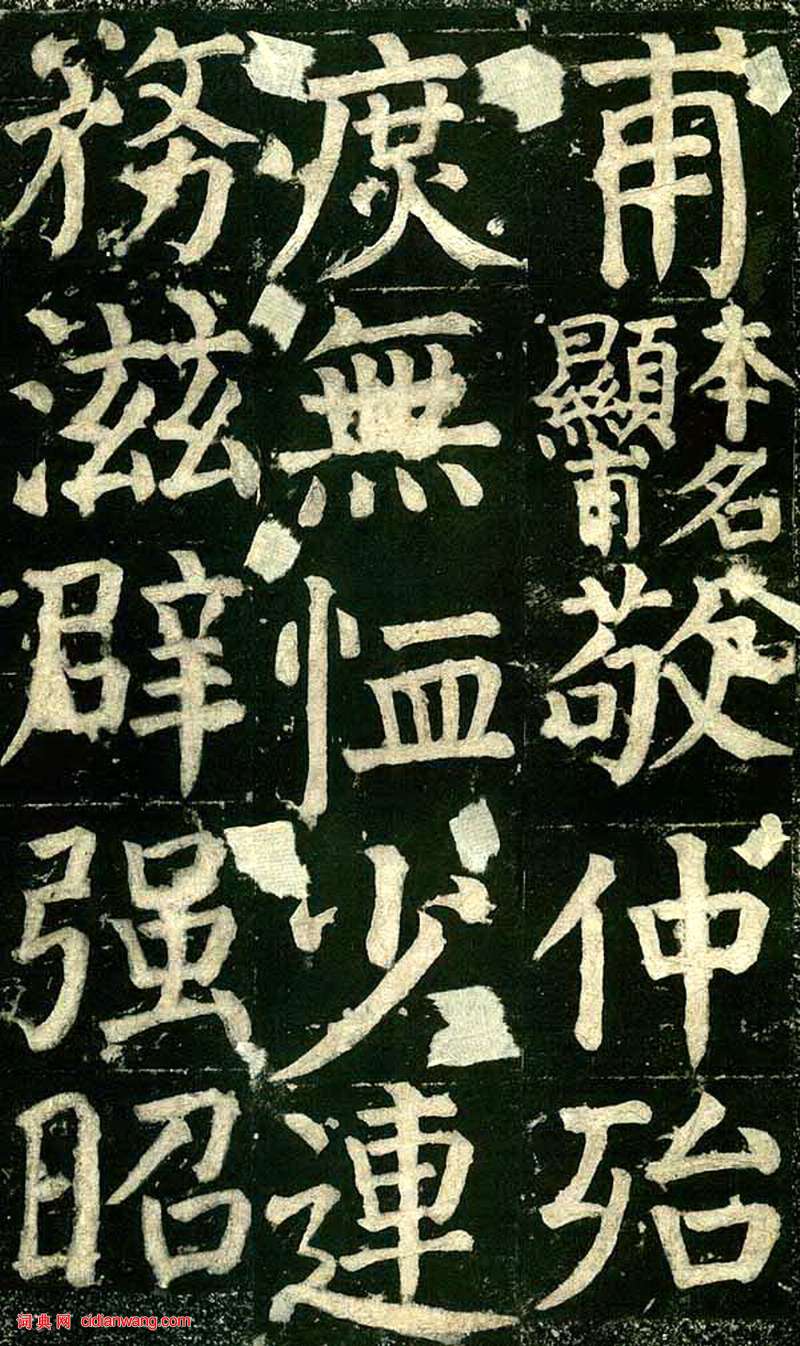 甫本名顯甫敬仲殆
庶無恤少連
務滋辟强昭
词典网 cidianwang.com